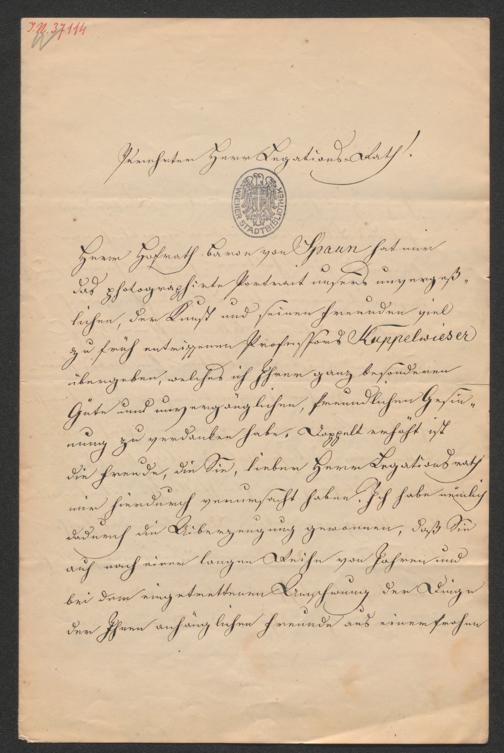 I.N. 37114
Verehrter Herr Legations-Rath!
WIENER STADTBIBLIOTHEK
Herr Hofrath Baron von Spaun hat mir
das photographirte Portrait unsers unvergeß-
lichen, der Kunst und seinen Freunden viel
zu früh entrissenen Professors Kuppelwieser
übergeben, welches ich Ihrer ganz besonderen
Güte und unvergänglichen, freundlichen Gesin-
nung zu verdanken habe. Doppelt erhöht ist
die Freude, die Sie, lieber Herr Legationsrath
mir hierdurch verursacht haben. Ich habe nemlich
dadurch die Überzeugung gewonnen, daß Sie
auch nach einer langen Reihe von Jahren und
bei dem eingetrettenen Umschwung der Dinge
der Ihnen anhänglichen Freunde aus einer frohen